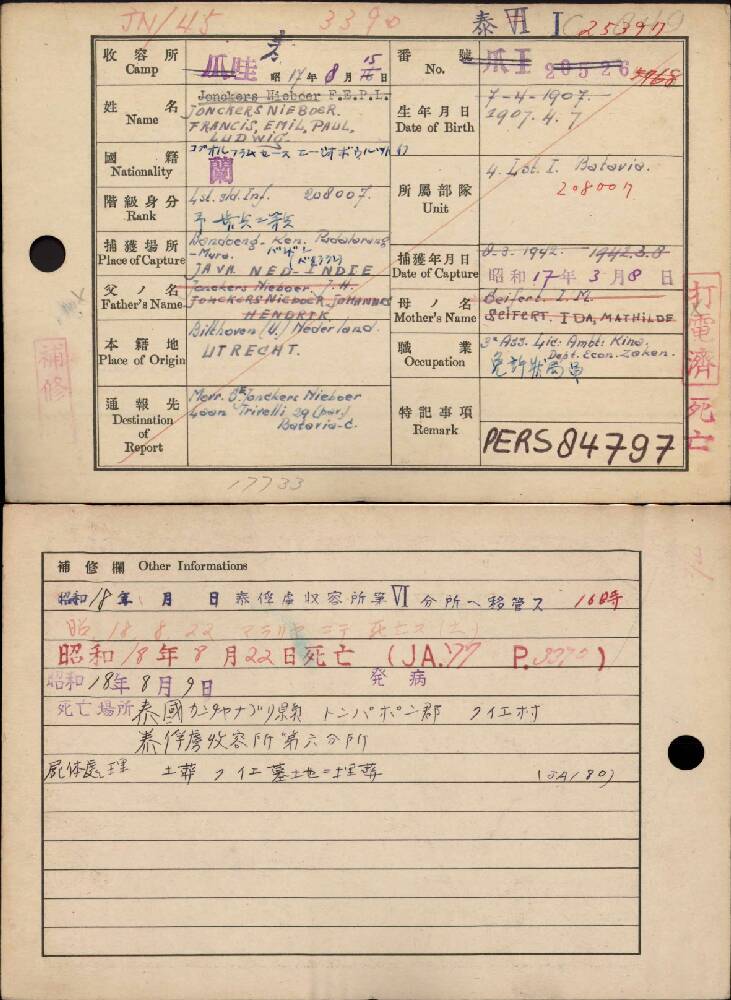 JN/45 3390 泰 VI I C 25397
收容所 Camp 爪哇 昭17年8月15日
番號 No. 爪Ⅱ 20526 5968
姓名 Name Jonckers Nieboer F.E.P.L.
JONCKERS NIEBOER.
FRANCIS, EMIL, PAUL,
LUDWIG.
生年月日 Date of Birth 7-4-1907.
1907. 4. 7
國籍 Nationality 蘭
階級身分 Rank Lst. sld. Inf. 208007.
所属部隊 Unit 4. Lst. I. Batavia.
208007
捕獲場所 Place of Capture Bandoeng - Ken. Padalarang
JAVA NED-INDIE
捕獲年月日 Date of Capture 8-3-1942. 1942.3.8
昭和17年3月8日
父ノ名 Father's Name Jonckers Nieboer. J.H.
JONCKERS NIEBOER, JOHANNES
HENDRIK
母ノ名 Mother's Name Seifert. I.M.
SEIFERT. IDA, MATHILDE
本籍地 Place of Origin Bilthoven (U.) Nederland.
UTRECHT.
職業 Occupation 3e Ass. Lic. Ambt: Kina,
Dept. Econ. Zaken.
免許状局員
通報先 Destination of Report Mevr. Jonckers Nieboer
Laan Trivelli 29 (pav)
Batavia-C.
特記事項 Remark
PERS 84797
打電濟
死亡
補修
17733
補修欄 Other Informations
昭和18年 月 日 泰俘虜収容所第VI分所ヘ移管ス 16時
昭 18. 8. 22 マラリヤ ニテ 死亡ス
昭和18年8月22日死亡 (JA.177 P.3390)
昭和18年8月9日 発病
死亡場所 泰國カンチャナブリ県 トンパポン郡 クイエ村
泰俘虜收容所第六分所
屍体處理 土葬 クイエ墓地ニ埋葬 (JA180)